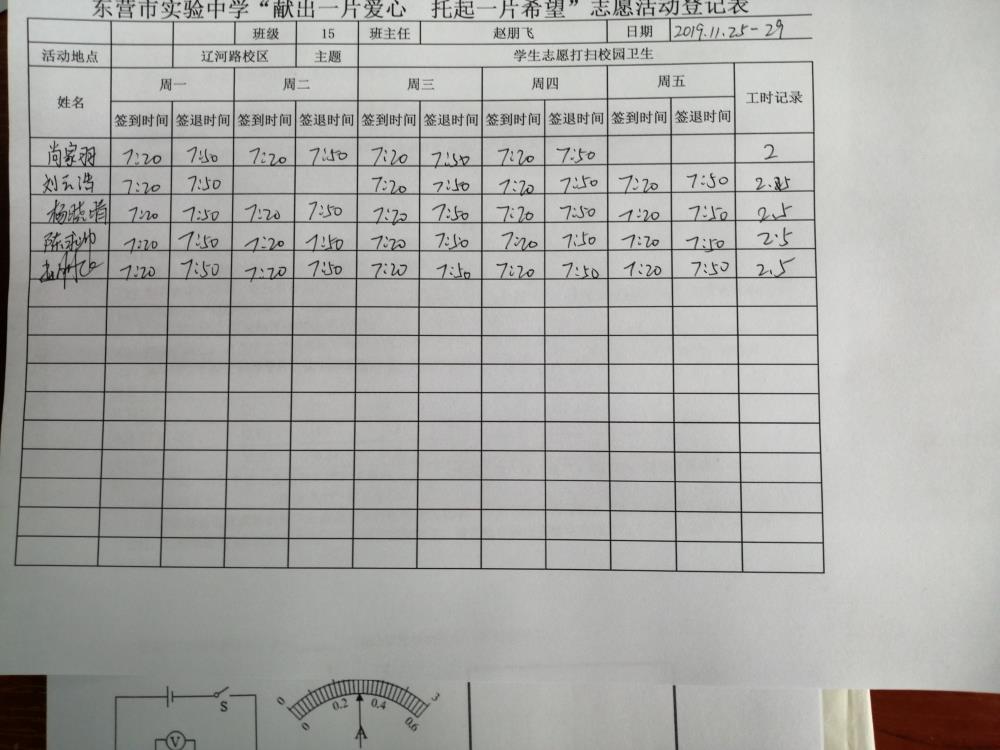 东营市实验中学“献出一片爱心 托起一片希望”志愿活动登记表
班级 15 班主任 赵朋飞 日期 2019.11.25-29
活动地点 辽河路校区 主题 学生志愿打扫校园卫生
姓名 周一 周二 周三 周四 周五 工时记录
签到时间 签退时间 签到时间 签退时间 签到时间 签退时间 签到时间 签退时间 签到时间 签退时间
尚家羽 7:20 7:50 7:20 7:50 7:20 7:50 7:20 7:50 2
刘云浩 7:20 7:50 7:20 7:50 7:20 7:50 7:20 7:50
7:20 7:50 7:20 7:50 7:20 7:50 7:20 7:50 7:20 7:50 2.5
7:20 7:50 7:20 7:50 7:20 7:50 7:20 7:50 7:20 7:50 2.5
7:20 7:50 7:20 7:50 7:20 7:50 7:20 7:50 7:20 7:50 2.5
S 0 3
0 0.2 0.4 0.6
V A